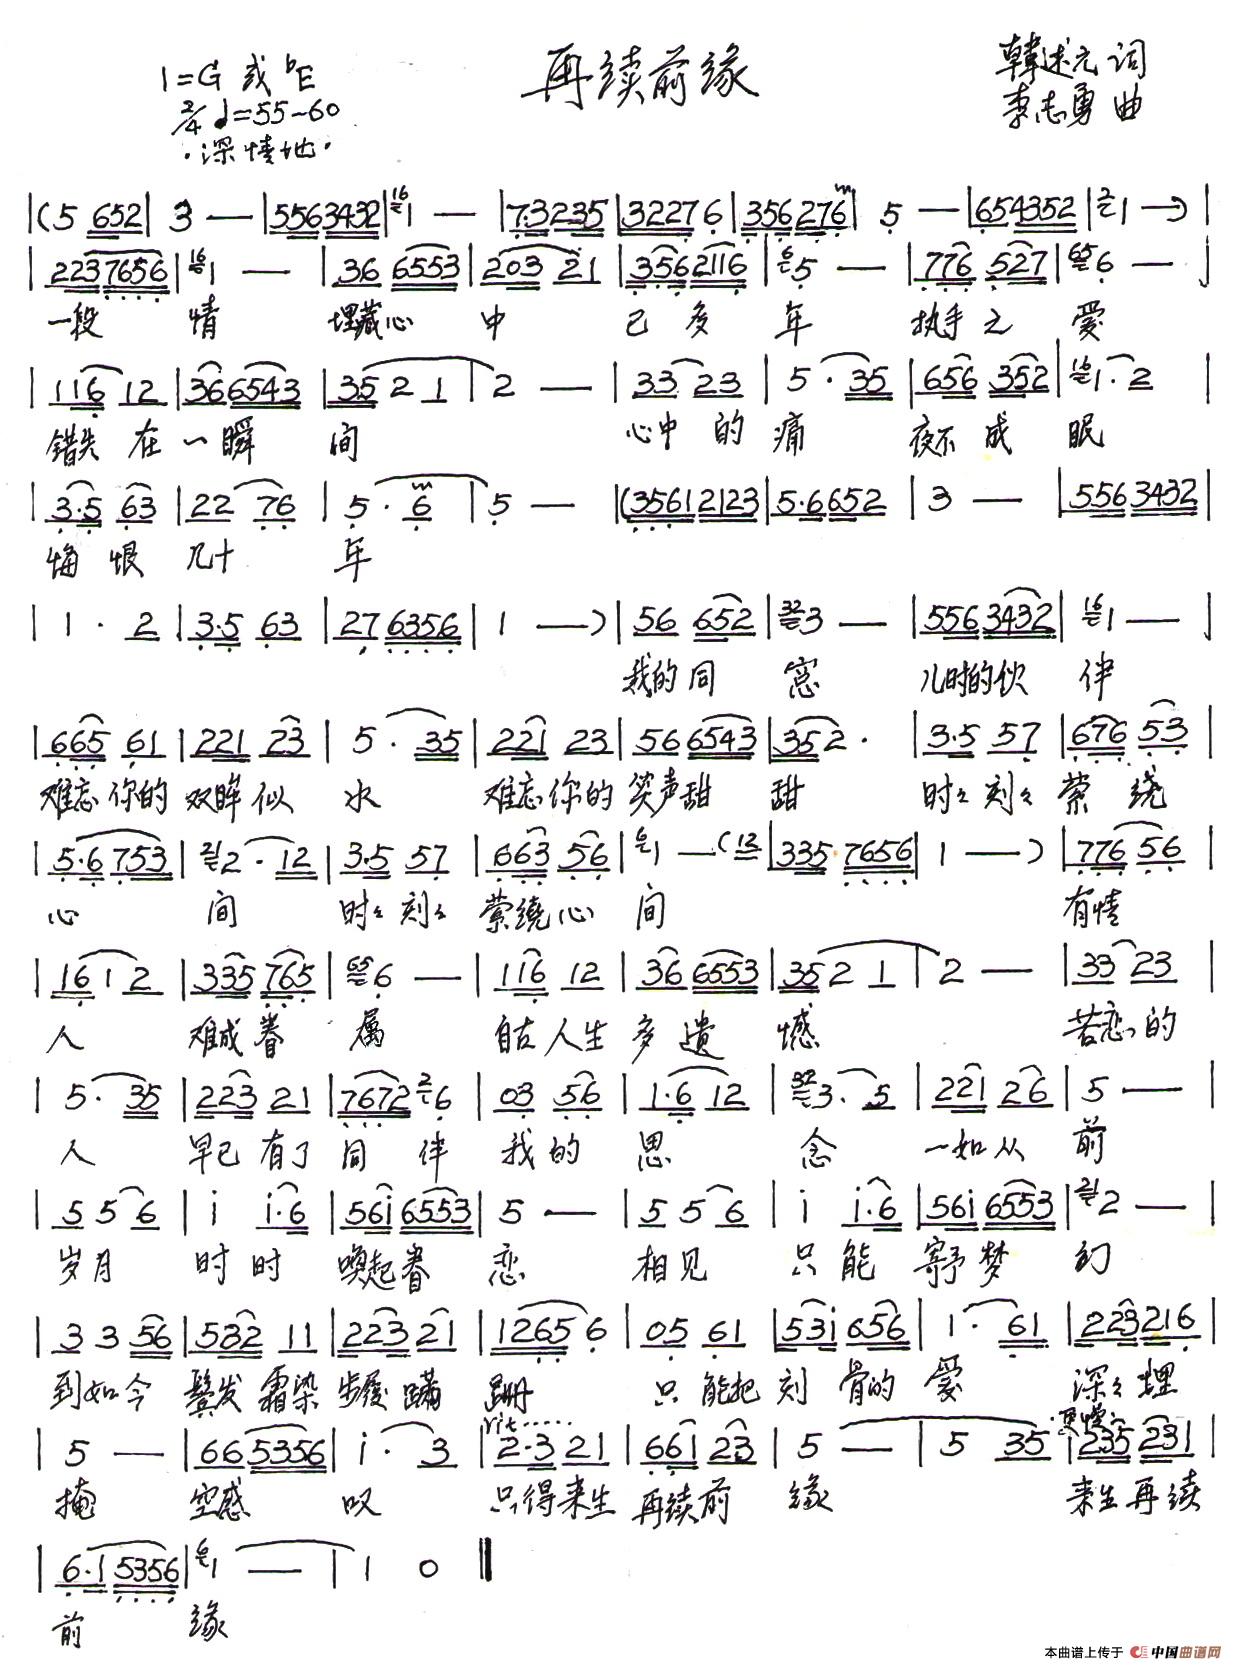 再续前缘
1=G 或 bE
韩述元 词
2/4 ♩=55~60
李志勇 曲
·深情地·
|(5 652| 3 — |5563432| 1 — |7·3235|32276|356276| 5 — |654352| 1 —)|
|2237656| 1 — |36 6553|203 21|3562116| 5 — |776 527| 6 — |
一段 情 埋藏心 中 已多 年 执手之 爱
|116 12|366543|35 2 1|2 — |33 23|5 · 35|656 352|1 · 2|
错失在 一瞬 间 心中的 痛 夜不成 眠
|3·5 63|22 76|5 · 6|5 — |(3561 2123|5·6652|3 — |5563432|
悔恨 几十 年
|1 · 2|3·5 63|27 6356|1 — )|56 652|3 — |5563432|1 — |
我的同 窓 儿时的伙 伴
|665 61|221 23|5 · 35|221 23|56 6543|352 ·|3·5 57|676 53|
难忘你的 双眸似 水 难忘你的 笑声甜 甜 时々刻々 萦绕
|5·6 753|2 · 12|3·5 57|663 56|1 — (12|335·7656|1 — )|776 56|
心 间 时々刻々 萦绕心 间 有情
|161 2|335 765|6 — |116 12|36 6553|35 2 1|2 — |33 23|
人 难成眷 属 自古人生 多遗 憾 苦恋的
|5 · 35|223 21|7672 6|03 56|1·6 12|3 · 5|221 26|5 — |
人 早已有了 同 伴 我的 思 念 一如从 前
|5 5 6|i i·6|56i 6553|5 — |5 5 6|i i·6|56i 6553|2 — |
岁月 时时 唤起眷 恋 相见 只能 寄予梦 幻
|3 3 56|532 11|223 21|1265 6|05 61|53i 656|1 · 61|223216|
到如今 鬓发霜染 步履蹒 跚 只能把 刻骨的 爱 深々埋
rit...... ·更慢·
|5 — |66 5356|i · 3|2·3 21|661 23|5 — |5 35|235 231|
掩 空感 叹 只得来生 再续前 缘 来生再续
|6·1 5356|1 — |1 0 ‖
前 缘
本曲谱上传于 中国曲谱网